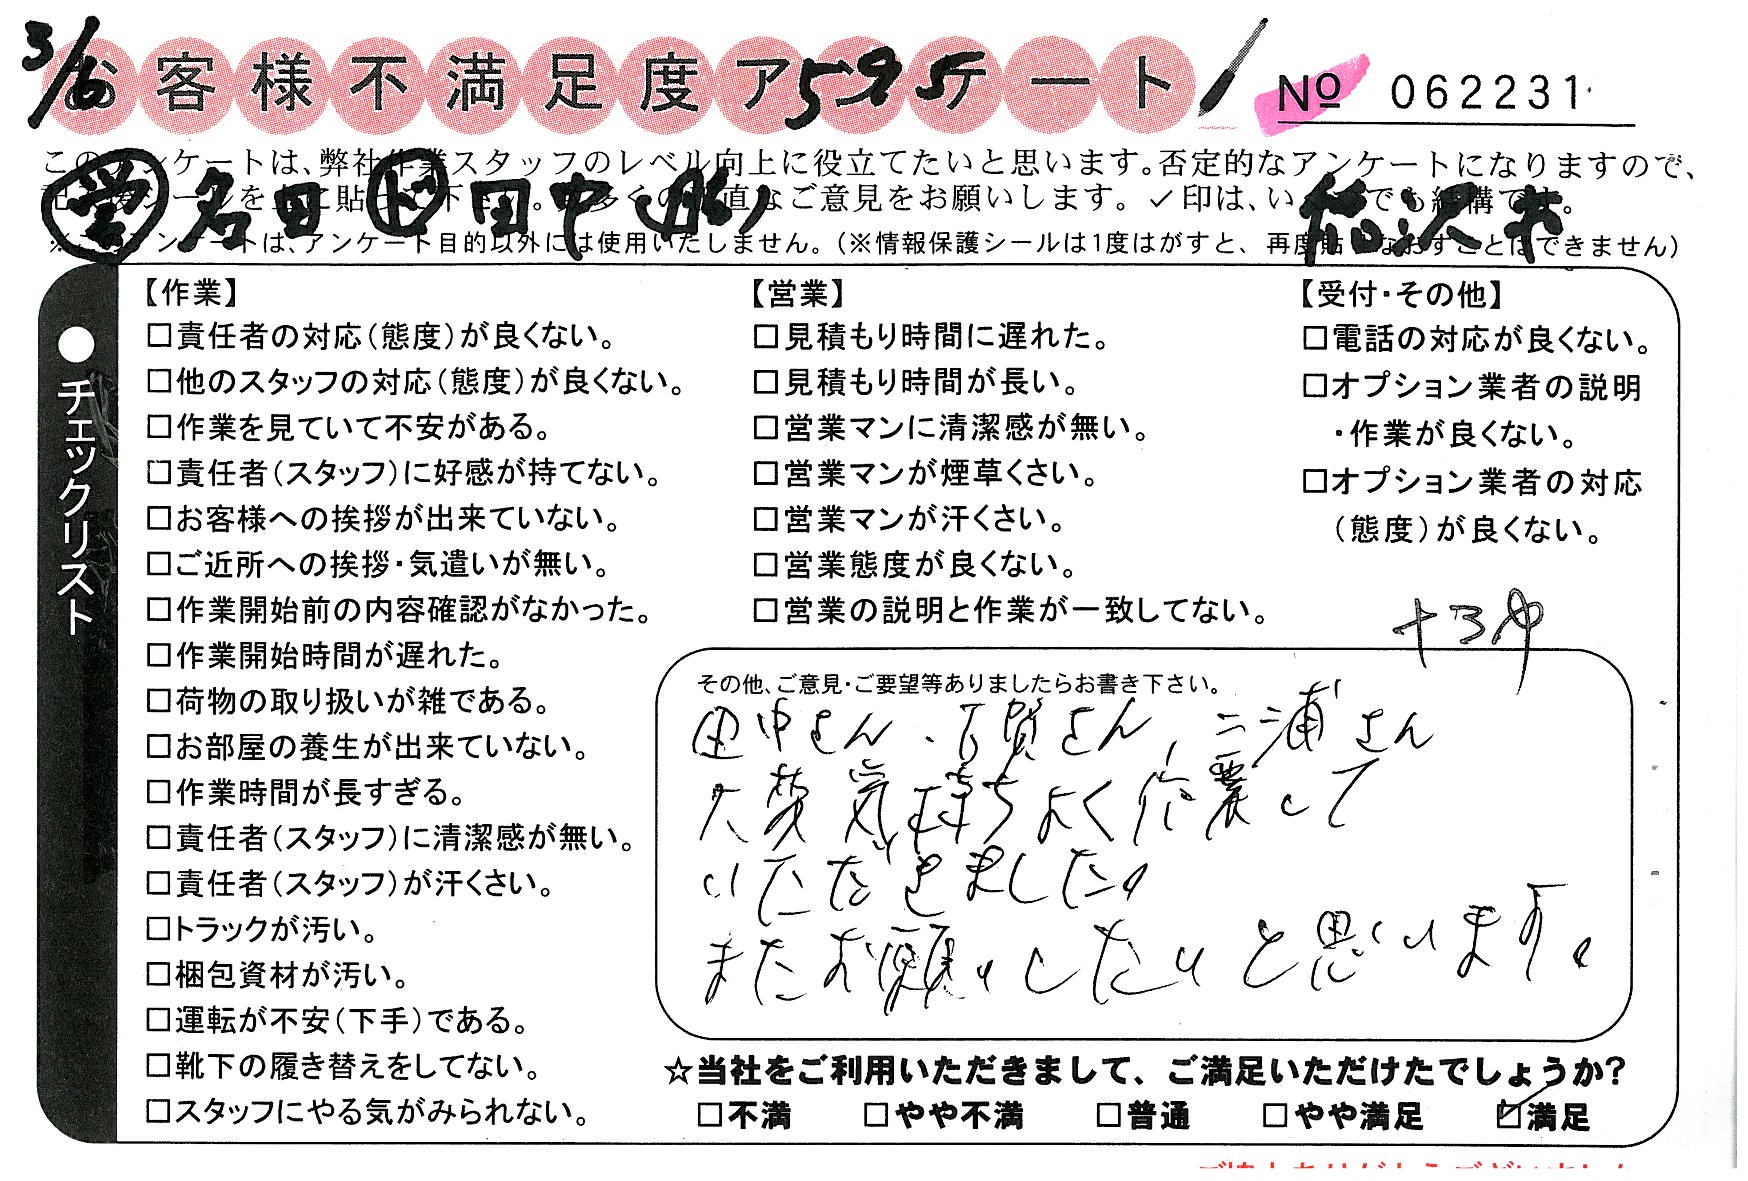 3/6 お客様不満足度アンケート 595 № 062231
このアンケートは、弊社作業スタッフのレベル向上に役立てたいと思います。否定的なアンケートになりますので、
直なご意見をお願いします。✓印は、いくつでも結構です。
営 名田 田中 稲沢市
※このアンケートは、アンケート目的以外には使用いたしません。(※情報保護シールは1度はがすと、再度貼りなおすことはできません)
●チェックリスト
【作業】
□責任者の対応(態度)が良くない。
□他のスタッフの対応(態度)が良くない。
□作業を見ていて不安がある。
□責任者(スタッフ)に好感が持てない。
□お客様への挨拶が出来ていない。
□ご近所への挨拶・気遣いが無い。
□作業開始前の内容確認がなかった。
□作業開始時間が遅れた。
□荷物の取り扱いが雑である。
□お部屋の養生が出来ていない。
□作業時間が長すぎる。
□責任者(スタッフ)に清潔感が無い。
□責任者(スタッフ)が汗くさい。
□トラックが汚い。
□梱包資材が汚い。
□運転が不安(下手)である。
□靴下の履き替えをしてない。
□スタッフにやる気がみられない。
【営業】
□見積もり時間に遅れた。
□見積もり時間が長い。
□営業マンに清潔感が無い。
□営業マンが煙草くさい。
□営業マンが汗くさい。
□営業態度が良くない。
□営業の説明と作業が一致してない。
【受付・その他】
□電話の対応が良くない。
□オプション業者の説明
・作業が良くない。
□オプション業者の対応
(態度)が良くない。
その他、ご意見・ご要望等ありましたらお書き下さい。
田中さん、古賀さん、三浦さん
大変気持ちよく作業して
いただきました。
またお願いしたいと思います。
☆当社をご利用いただきまして、ご満足いただけたでしょうか?
□不満 □やや不満 □普通 □やや満足 ☑満足